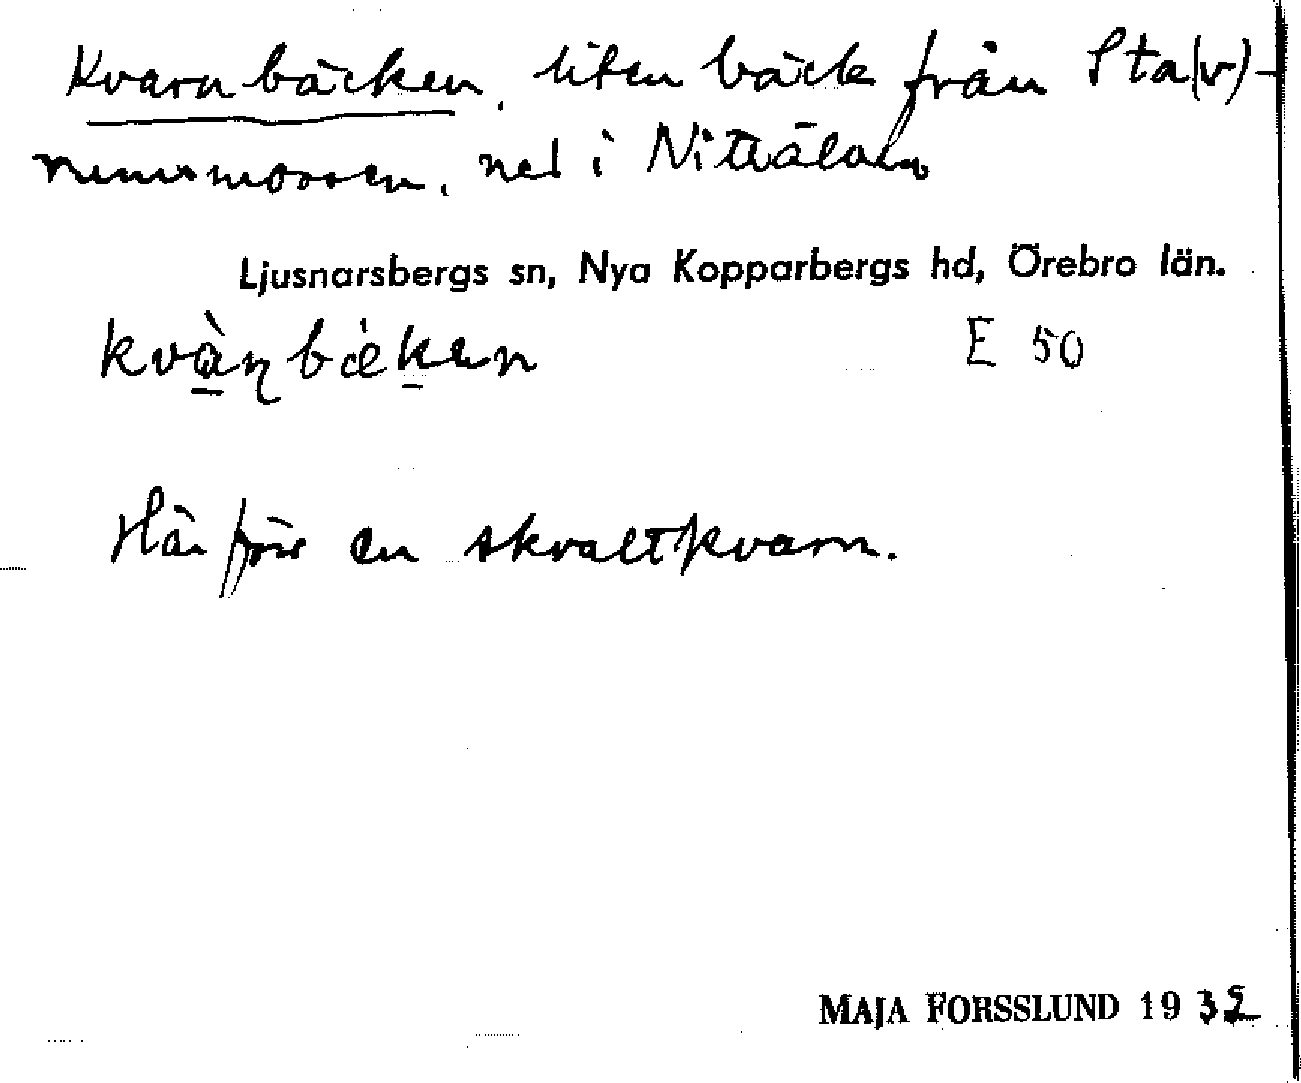 Kvarnbäcken, liten bäck från Sta(v)-
mossen, ned i Nittälven
Ljusnarsbergs sn, Nya Kopparbergs hd, Örebro län.
kvàɳbæken E 50
Här förr en skvaltkvarn.
MAJA FORSSLUND 1932